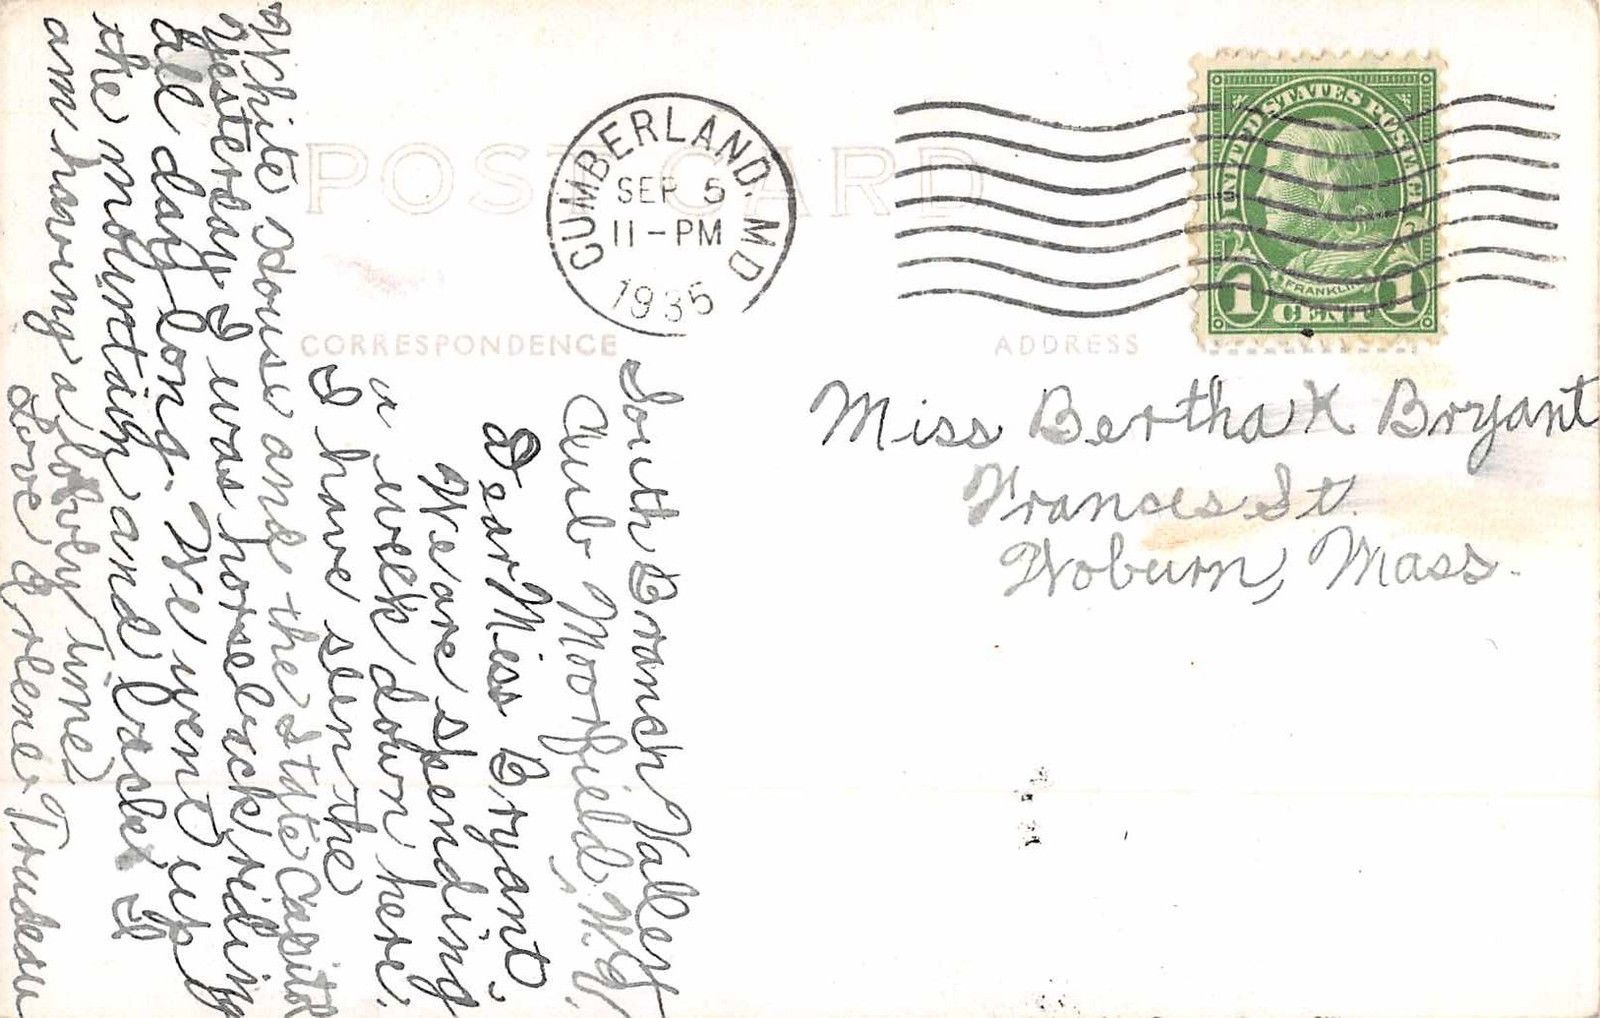 POST CARD
CUMBERLAND, MD
SEP 5
11-PM
1935
UNITED STATES POSTAGE
FRANKLIN
1 CENT 1
CORRESPONDENCE
ADDRESS
Miss Bertha K Bryant
Frances St.
Woburn, Mass.
South Branch Valley
Club Moorfield, W.V.
Dear Miss Bryant,
We are spending
a week down here.
I have seen the
White House and the State Capitol
Yesterday I was horseback riding
all day long. We went up
the mountain and back. I
am having a lovely time.
Love Arlene Trudeau